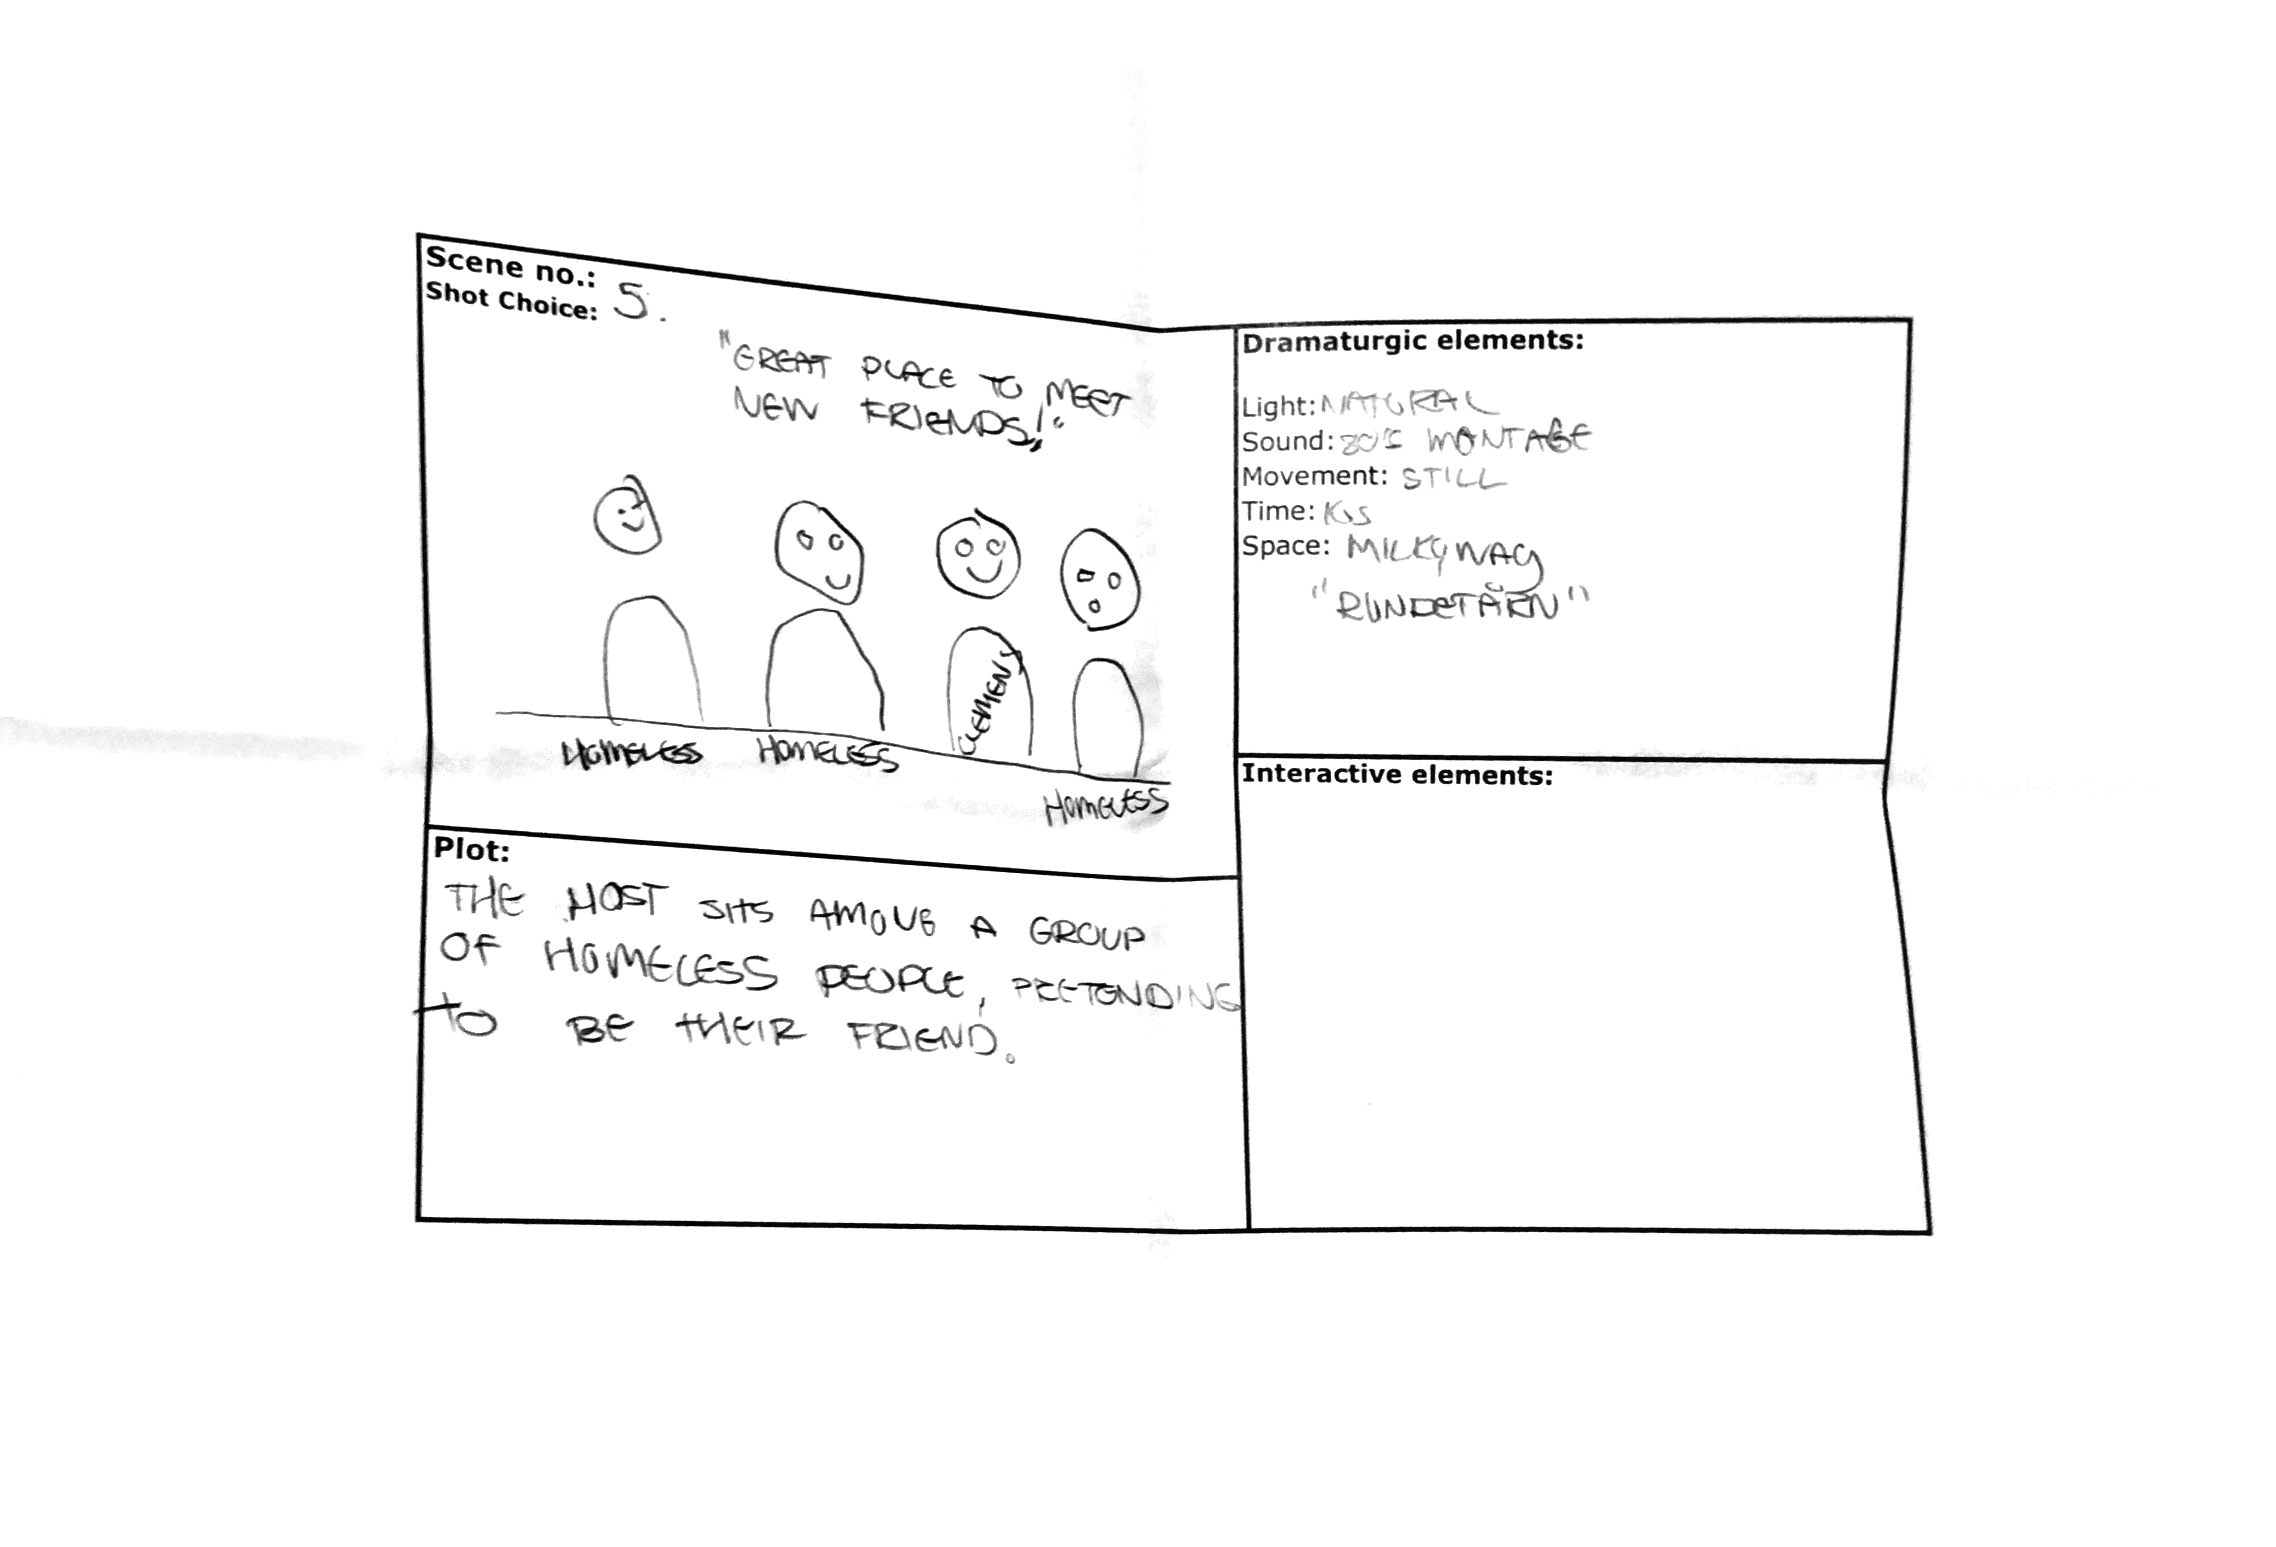 Scene no.:
Shot Choice: 5.
"GREAT PLACE TO MEET
NEW FRIENDS!"
CLEMENS
HOMELESS HOMELESS
HOMELESS
Plot:
THE HOST SITS AMONG A GROUP
OF HOMELESS PEOPLE, PRETENDING
TO BE THEIR FRIEND.
Dramaturgic elements:
Light: NATURAL
Sound: 80'S MONTAGE
Movement: STILL
Time:
Space: MILKYWAY
"RUNDETÅRN"
Interactive elements: